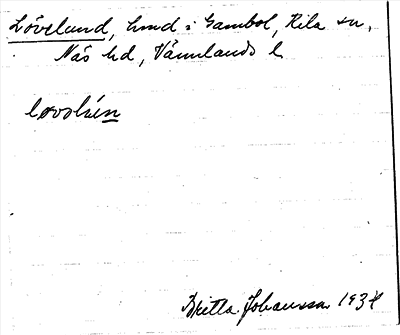 Lövelund, hmd i Gambol, Kila sn,
Näs hd, Värmlands l
Britta Johansson 1934